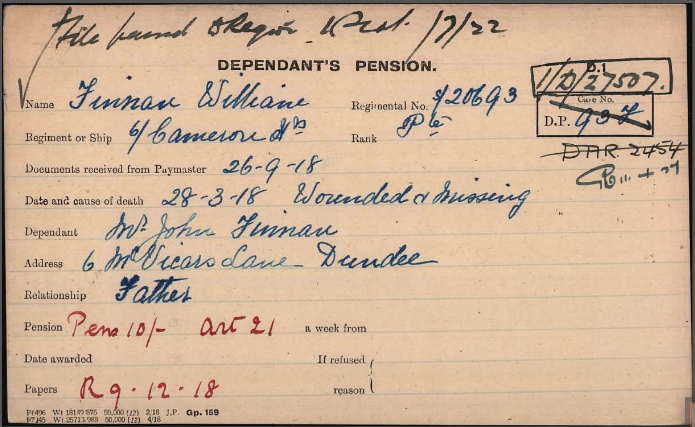 File passed 1/7/22
DEPENDANT'S PENSION.
D.1
1/D/27507.
Name Finnan William Regimental No. S/20693
Case No.
D.P. 937
Regiment or Ship 6/Cameron Hrs Rank Pte
DAR. 2454
Documents received from Paymaster 26-9-18
Date and cause of death 28-3-18 Wounded & Missing
Dependant Mr John Finnan
Address 6 McVicars Lane Dundee
Relationship Father
Pension Pens 10/- Art 21 a week from
Date awarded If refused
Papers R 9.12.18 reason
F6496 Wt 18149/875 50,000 (12) 2/18 J.P. Gp. 159
H7145 Wt 25713/988 50,000 (12) 4/18